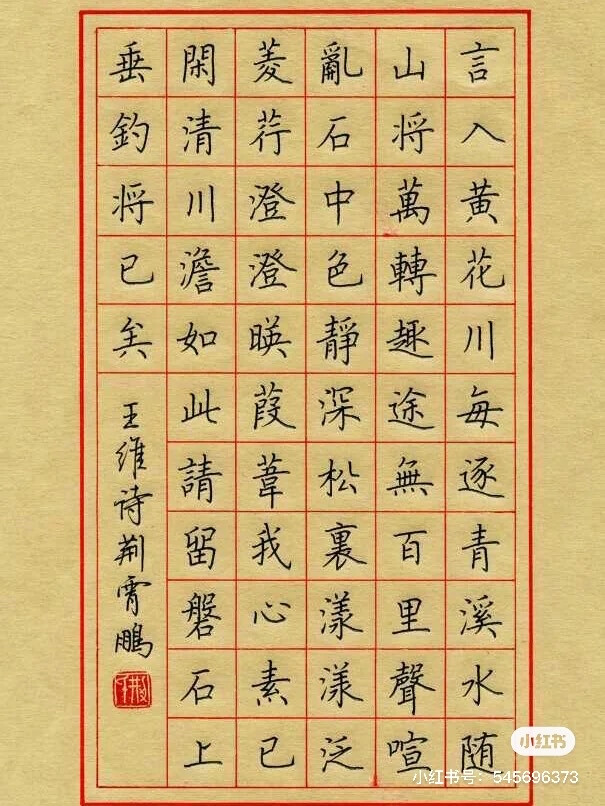 言入黄花川每逐青溪水随
山将萬轉趣途無百里聲喧
亂石中色靜深松裏漾漾泛
菱荇澄澄暎葭葦我心素已
閑清川澹如此請留磐石上
垂釣将已矣
王维诗荆霄鹏
小红书
小红书号：545696373